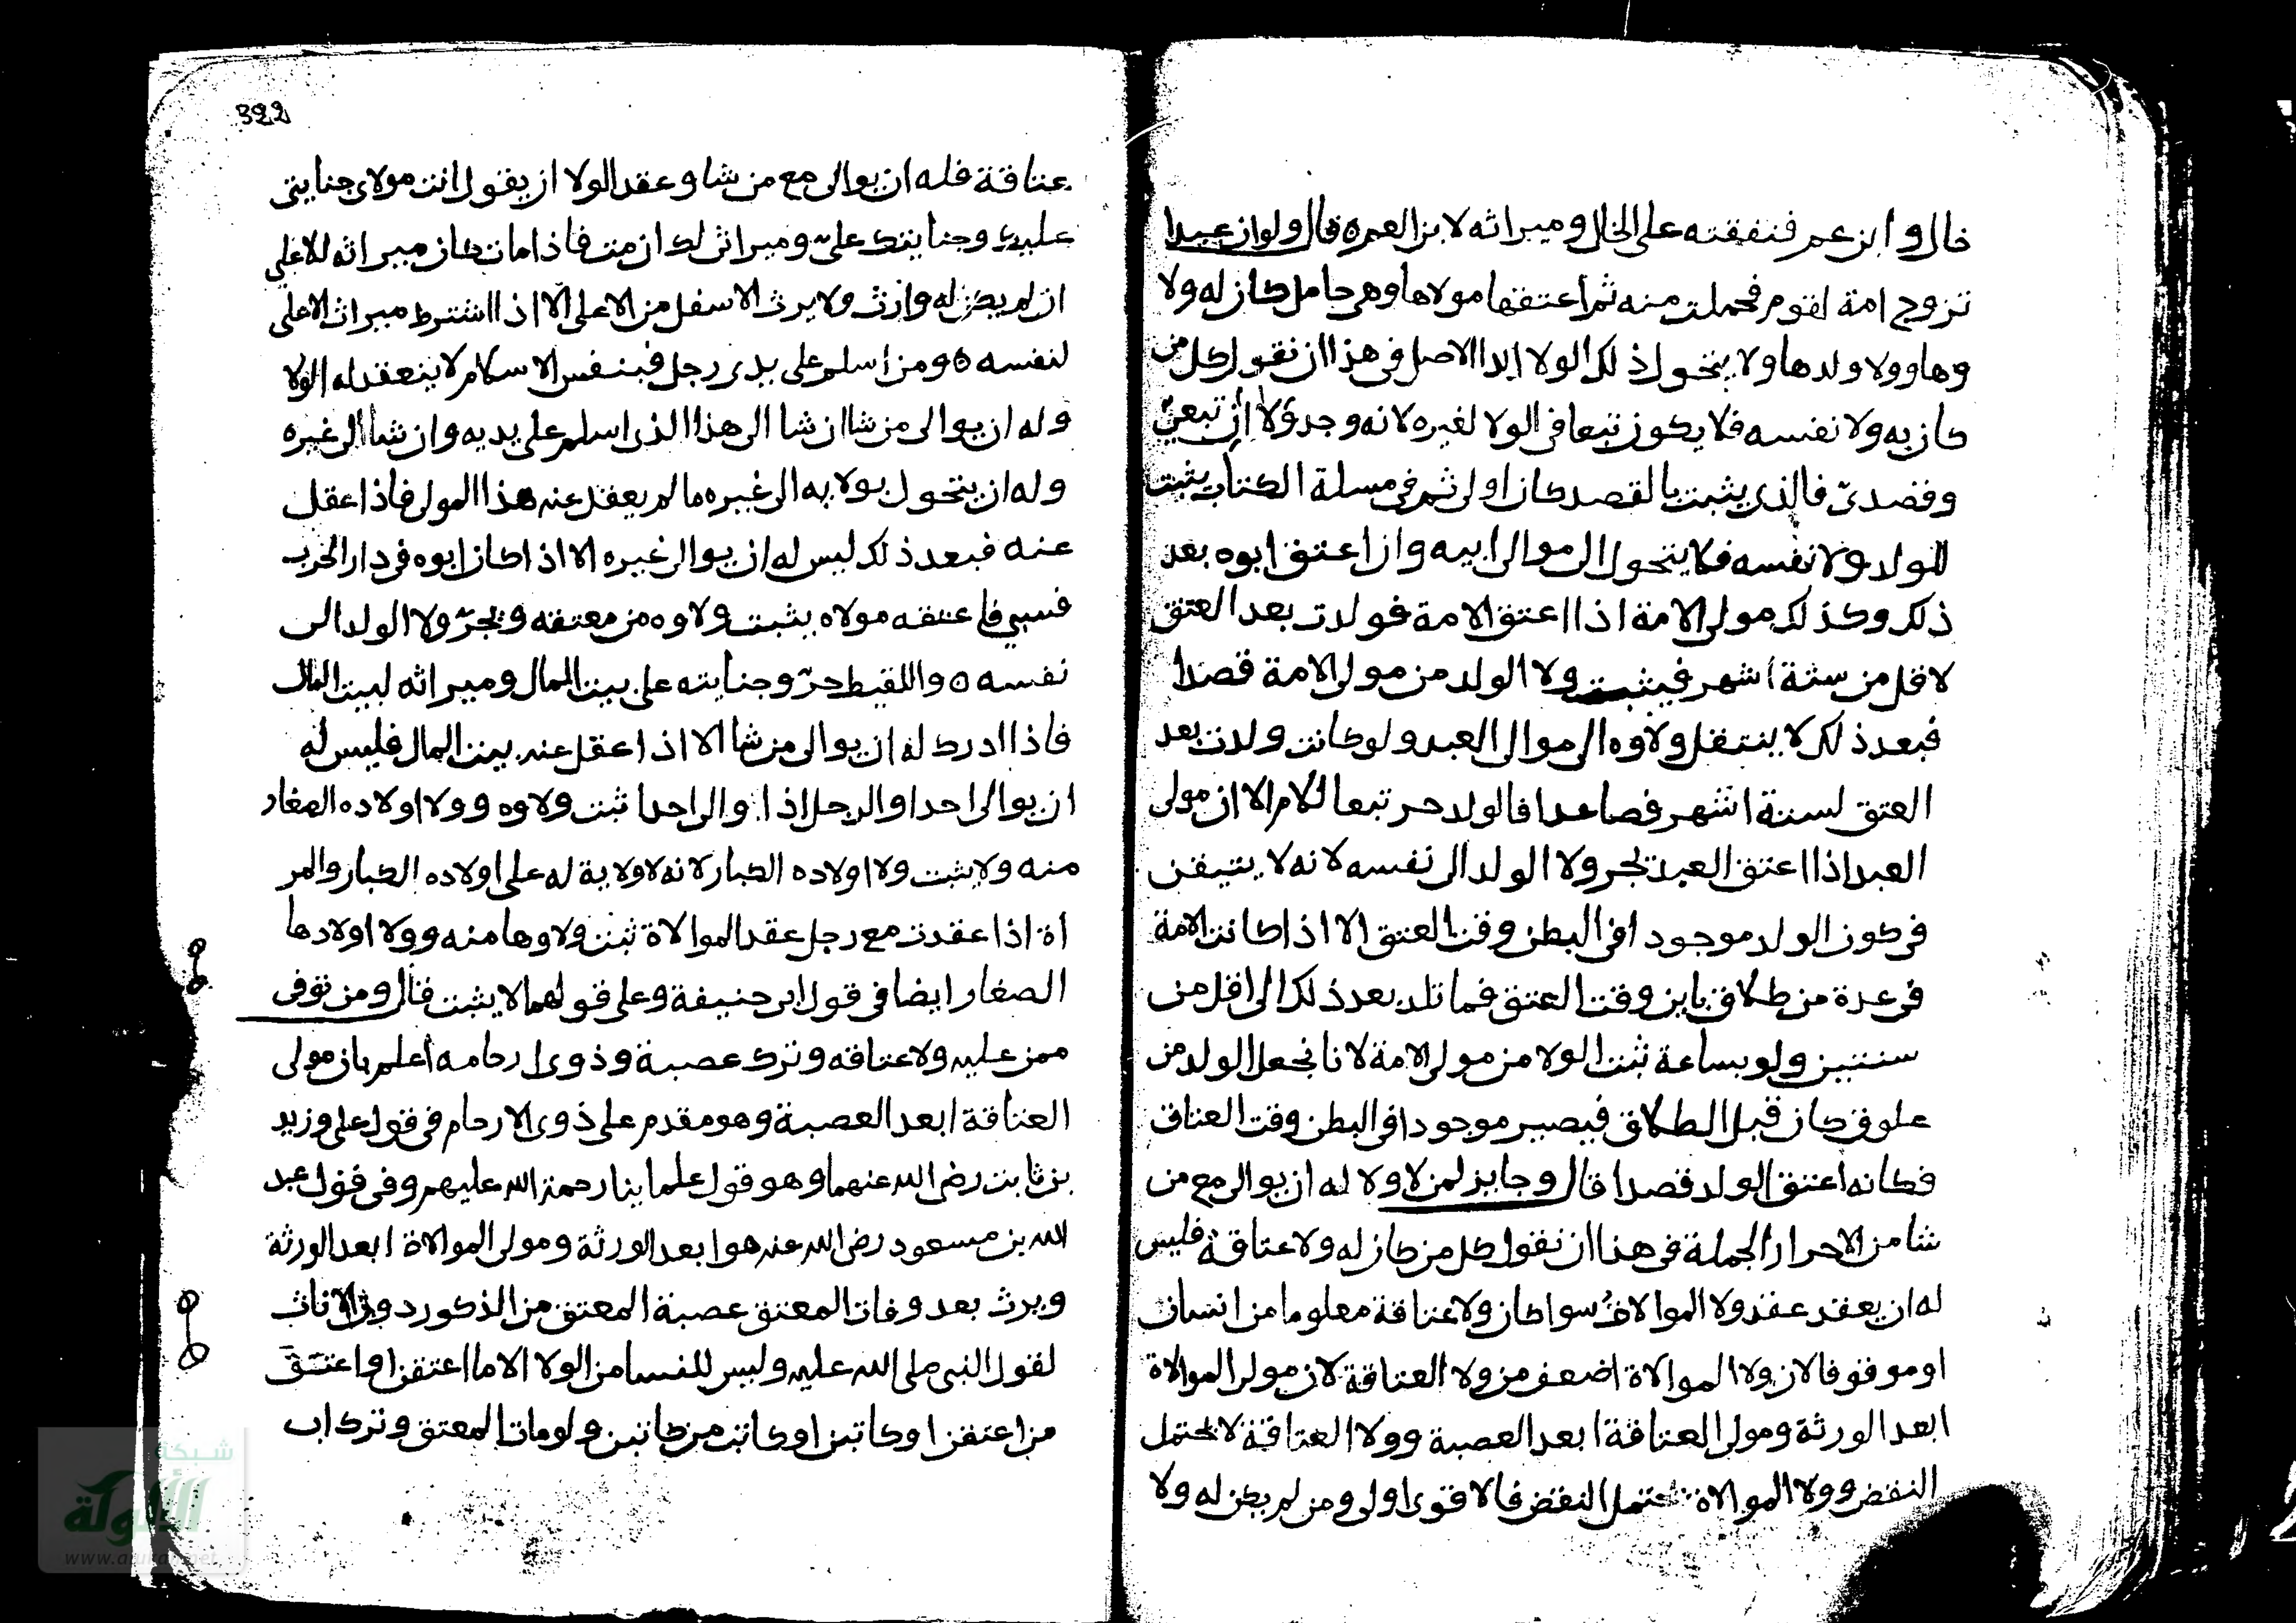 خال وابن عم فنفقته على الخال وميراثه لابن العم ه قال ولو ان عبدا
تزوج امة لقوم فحملت منه ثم اعتقها مولاها وهي حامل كان له ولا
وها وولا ولدها ولا يتحول ذلك الولا ابدا الاصل في هذا ان نقول كل من
كان به ولا نفسه فلا يكون تبعا في الولا لغيره لانه وجد ولاان تبعي
وقصدي فالذي يثبت بالقصد كان اولى ثم في مسلة الكتاب يثبت
للولد ولا نفسه فلا يتحول الى موالى ابيه وان اعتق ابوه بعد
ذلك وكذلك مولى الامة اذا اعتق الامة فولدت بعد العتق
لاقل من ستة اشهر فيثبت ولا الولد من مولى الامة قصدا
فبعد ذلك لا ينتقل ولاوه الى موالى العبد ولو كانت ولدت بعد
العتق لستة اشهر فصاعدا فالولد حر تبعا للام الا ان مولى
العبد اذا اعتق العبد تجر ولا الولد الى نفسه لانه لا يتيقن
في كون الولد موجودا في البطن وقت العتق الا اذا كانت الامة
في عدة من طلاق باين وقت العتق فما تلد بعد ذلك الى اقل من
سنتين ولو بساعة ثبت الولا من مولى الامة لانا نجعل الولد من
علوق كان قبل الطلاق فيصير موجودا في البطن وقت العتاق
فكانه اعتق الولد قصدا قال وجايز لمن لا ولا له ان يوالي مع من
شا من الاحرار الجملة في هذا ان نقول كل من كان له ولا عتاقة فليس
له ان يعقد عقد ولا الموالاة سوا كان ولا عتاقة معلوما من انسان
او موقوفا لان ولا الموالاة اضعف من ولا العتاقة لان مولى الموالاة
ابعد الورثة ومولى العتاقة ابعد العصبة وولا العتاقة لا يحتمل
النقض وولا الموالاة يحتمل النقض فالاقوى اولى ومن لم يكن له ولا
322
عتاقة فله ان يوالي مع من شا وعقد الولا ان يقول انت مولاي جنايتي
عليك وجنايتك علي وميراثي لك ان مت فاذا مات كان ميراثه للاعلى
ان لم يكن له وارث ولا يرث الاسفل من الاعلى الا اذا اشترط ميراث الاعلى
لنفسه ه ومن اسلم على يدي رجل فبنفس الاسلام لا ينعقد له الولا
وله ان يوالي من شا ان شا الى هذا الذي اسلم على يديه وان شا الى غيره
وله ان يتحول بولايه الى غيره ما لم يعقل عنه هذا المولى فاذا عقل
عنه فبعد ذلك ليس له ان يوالي غيره الا اذا كان ابوه في دار الحرب
فسبي فاعتقه مولاه يثبت ولاوه من معتقه ويجر ولا الولد الى
نفسه ه واللقيط حر وجنايته على بيت المال وميراثه لبيت المال
فاذا ادرك له ان يوالي من شا الا اذا عقل عنه بيت المال فليس له
ان يوالي احدا والرجل اذا والى احدا ثبت ولاوه وولا اولاده الصغار
منه ولا يثبت ولا اولاده الكبار لانه لا ولاية له على اولاده الكبار والمر
اة اذا عقدت مع رجل عقد الموالاة ثبت ولاوها منه وولا اولادها
الصغار ايضا في قول ابي حنيفة وعلى قولهما لا يثبت قال ومن توفى
ممن عليه ولا عتاقه وترك عصبة وذوي ارحامه اعلم بان مولى
العتاقة ابعد العصبة وهو مقدم على ذوي الارحام في قول علي وزيد
بن ثابت رضي الله عنهما وهو قول علماينا رحمة الله عليهم وفي قول عبد
الله بن مسعود رضي الله عنه هو ابعد الورثة ومولى الموالاة ابعد الورثة
ويرث بعد وفات المعتق عصبة المعتق من الذكور دون الاناث
لقول النبي صلى الله عليه وليس للنسا من الولا الا ما اعتقن او اعتق
من اعتقن او كاتبن او كاتب من كاتبن ولو مات المعتق وترك اب